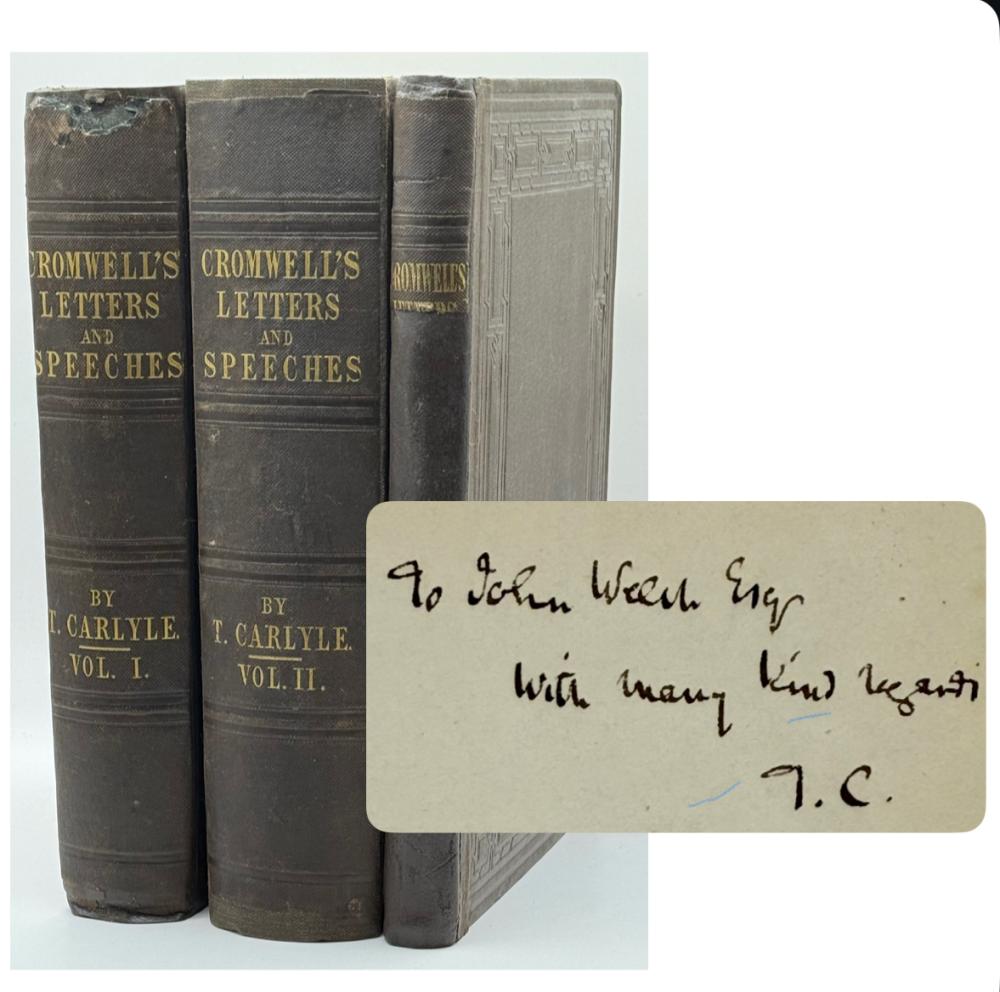 CROMWELL'S
LETTERS
AND
SPEECHES
BY
T. CARLYLE.
VOL. I.
CROMWELL'S
LETTERS
AND
SPEECHES
BY
T. CARLYLE.
VOL. II.
CROMWELL'S
To John Welsh Esqr
With many kind regards
T. C.